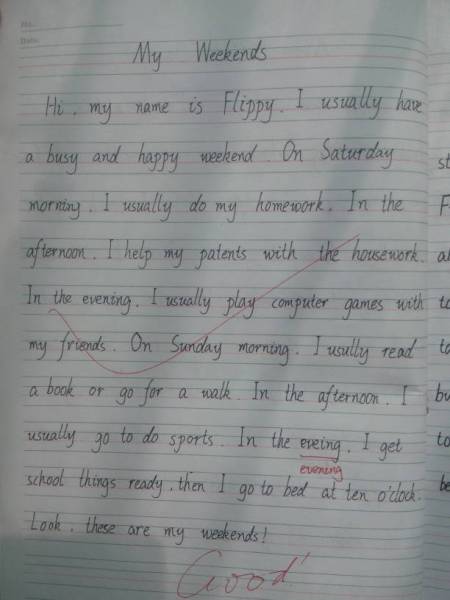 No.
Date.
My Weekends
Hi, my name is Flippy. I usually have
a busy and happy weekend. On Saturday
morning, I usually do my homework. In the
afternoon, I help my patents with the housework.
In the evening, I usually play computer games with
my friends. On Sunday morning, I usully read
a book or go for a walk. In the afternoon, I
usually go to do sports. In the eveing, I get
evening
school things ready, then I go to bed at ten o'clock.
Look, these are my weekends!
Good
st
F
al
to
to
bu
to
be